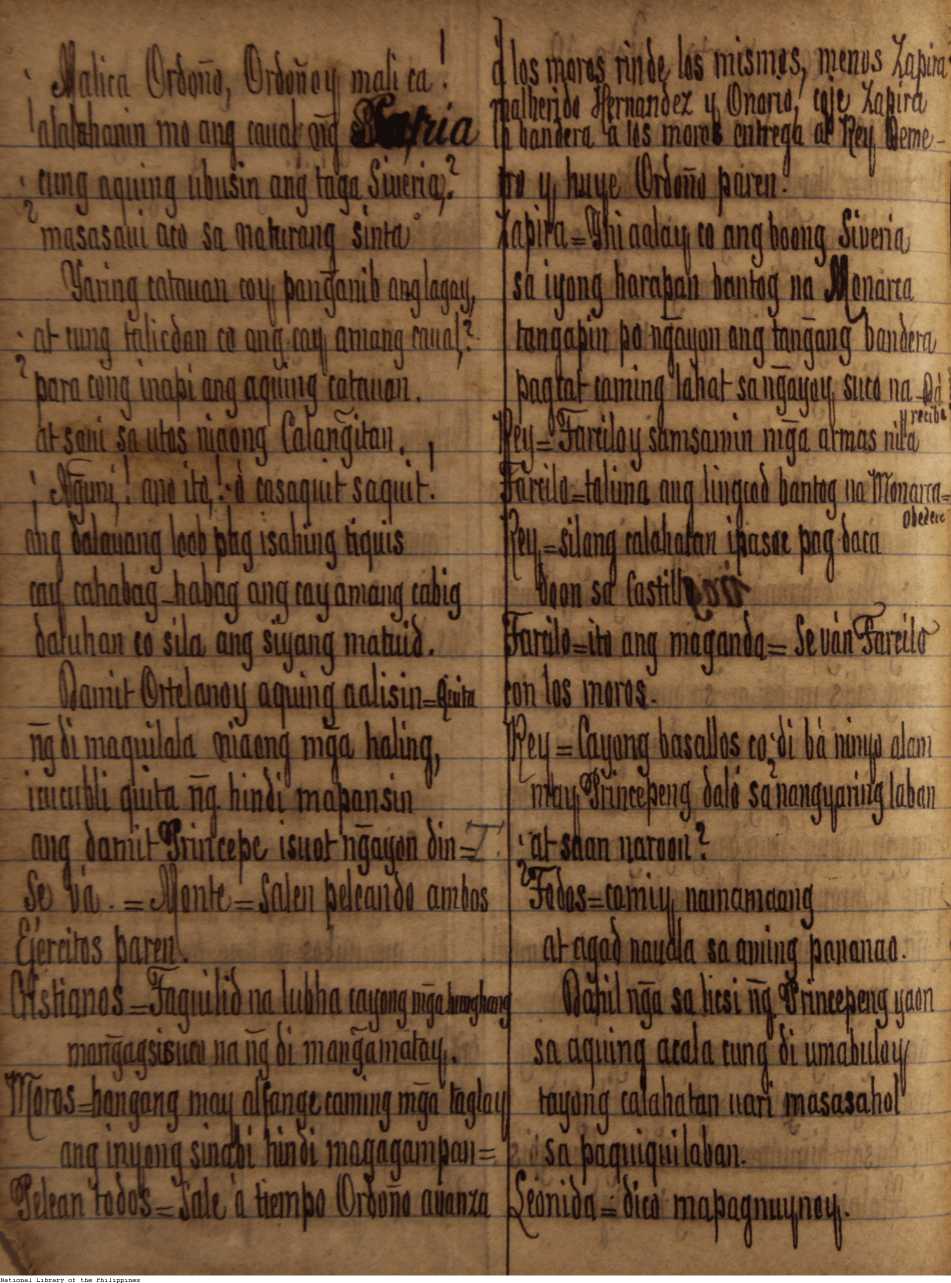 ¡Malica Ordoño, Ordoñoy mali ca!
¡alalahanin mo ang caual ng̃ Sapria
¿cung aquing ubusin ang taga Siveria,?
masasaui aco sa naturang sinta
Yaring catauan coy, pang̃anib ang lagay,
¿at cung talicdan co ang cay amang caual,?
para cong inapi ang aquing catauan.
at sani sa utos niaong Calang̃itan.
¡Ag̃uni,! ano ito,! ó casaquit saquit.!
ang dalauang loob pag isahing tiquis
cay cahabag-habag ang cay amang cabig
daluhan co sila ang siyang matuid.
Damit Ortelanoy aquing aalisin=Quita
ng̃ di maquilala niaong mg̃a haling,
icucubli quita ng̃ hindi mapansin
ang damit Principe isuot ng̃ayon din=T.
Se vá.=Monte=Salen peleando ambos
Ejércitos paren.
Cristianos=Taguilid na lubha cayong mg̃a hunghang
mang̃agsisuco na ng̃ di mang̃amatay.
Moros=hangang may alfange caming mg̃a taglay
ang inyong sinabi hindi magagampan=
Pelean todos=Sale á tiempo Ordoño avanza
á los moros rinde los mismos, menos Zapira
malherido Hernandez y Onorio, coje Zapira
la bandera á los moros entrega al Rey Deme-
rio y huye Ordoño paren.
Zapira=Yhi aalay co ang boong Siveria
sa iyong harapan bantog na Monarca
tangapin po ng̃ayon ang tang̃ang bandera
pagcat caming lahat sa ng̃ayoy, suco na
recibe
Rey=Farciloy samsamin mg̃a armas nila
Farcilo=talima ang lingcod bantog na Monarca=
Obedece
Rey=silang calahatan ipasoc pag daca
doon sa Castillo
Farcilo=ito ang maganda=Se ván Farcilo
con los moros.
Rey=Cayong basallos co,¿di bá ninyo alam
may Principeng daló sa nangyaring laban
¿at saan naroon?
Todos=camiy, namamaang
at agad nauala sa aming pananao.
Dahil ng̃a sa licsi ng̃ Principeng yaon
sa aquing acala cung di umabuloy
tayong calahatan uari masasahol
sa paquiquilaban.
Leonida=dico mapagnuynoy.
National Library of the Philippines